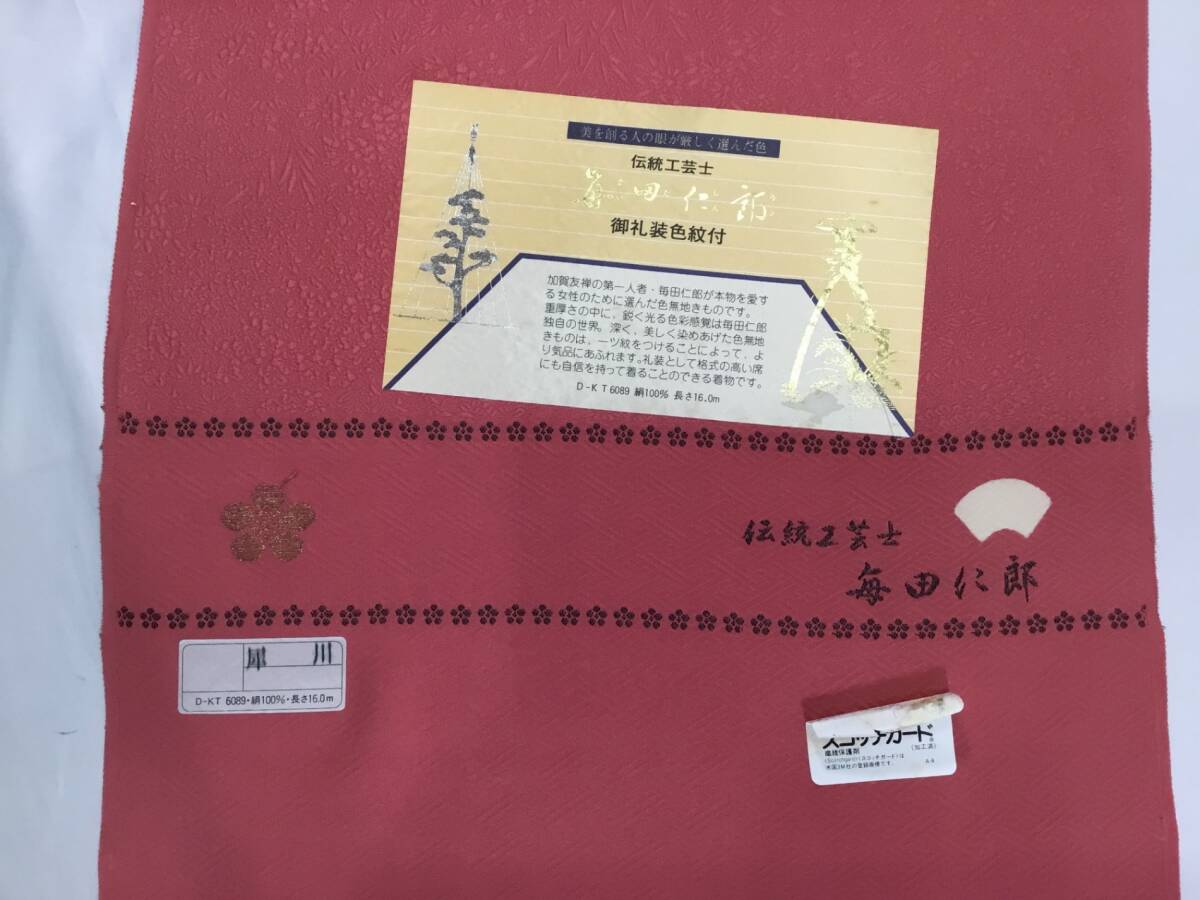 美を創る人の眼が厳しく選んだ色
伝統工芸士
毎田仁郎
御礼装色紋付
加賀友禅の第一人者・毎田仁郎が本物を愛す
る女性のために選んだ色無地きものです。
重厚さの中に、鋭く光る色彩感覚は毎田仁郎
独自の世界。深く、美しく染めあげた色無地
きものは、一ツ紋をつけることによって、よ
り気品にあふれます。礼装として格式の高い席
にも自信を持って着ることのできる着物です。
D-KT6089 絹100% 長さ16.0m
伝統工芸士
毎田仁郎
犀川
D-KT 6089・絹100%・長さ16.0m
スコッチガード®
繊維保護剤
(加工済)
(Scotchgard)(スコッチガード)は
米国3M社の登録商標です。
A-4